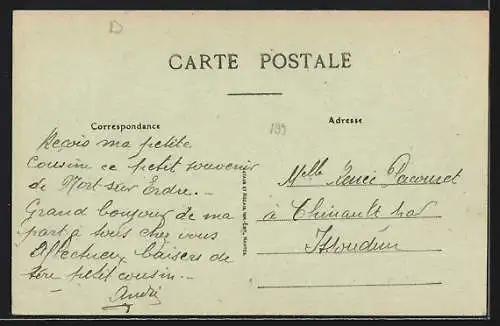 D
CARTE POSTALE
Correspondance
199
Adresse
Reçois ma petite
Cousine ce petit souvenir
de Nort sur Erdre. _
Grand bonjour de ma
part à tous chez vous
Affectueux baisers de
ton petit cousin. _
André
Melle
à
Issoudun